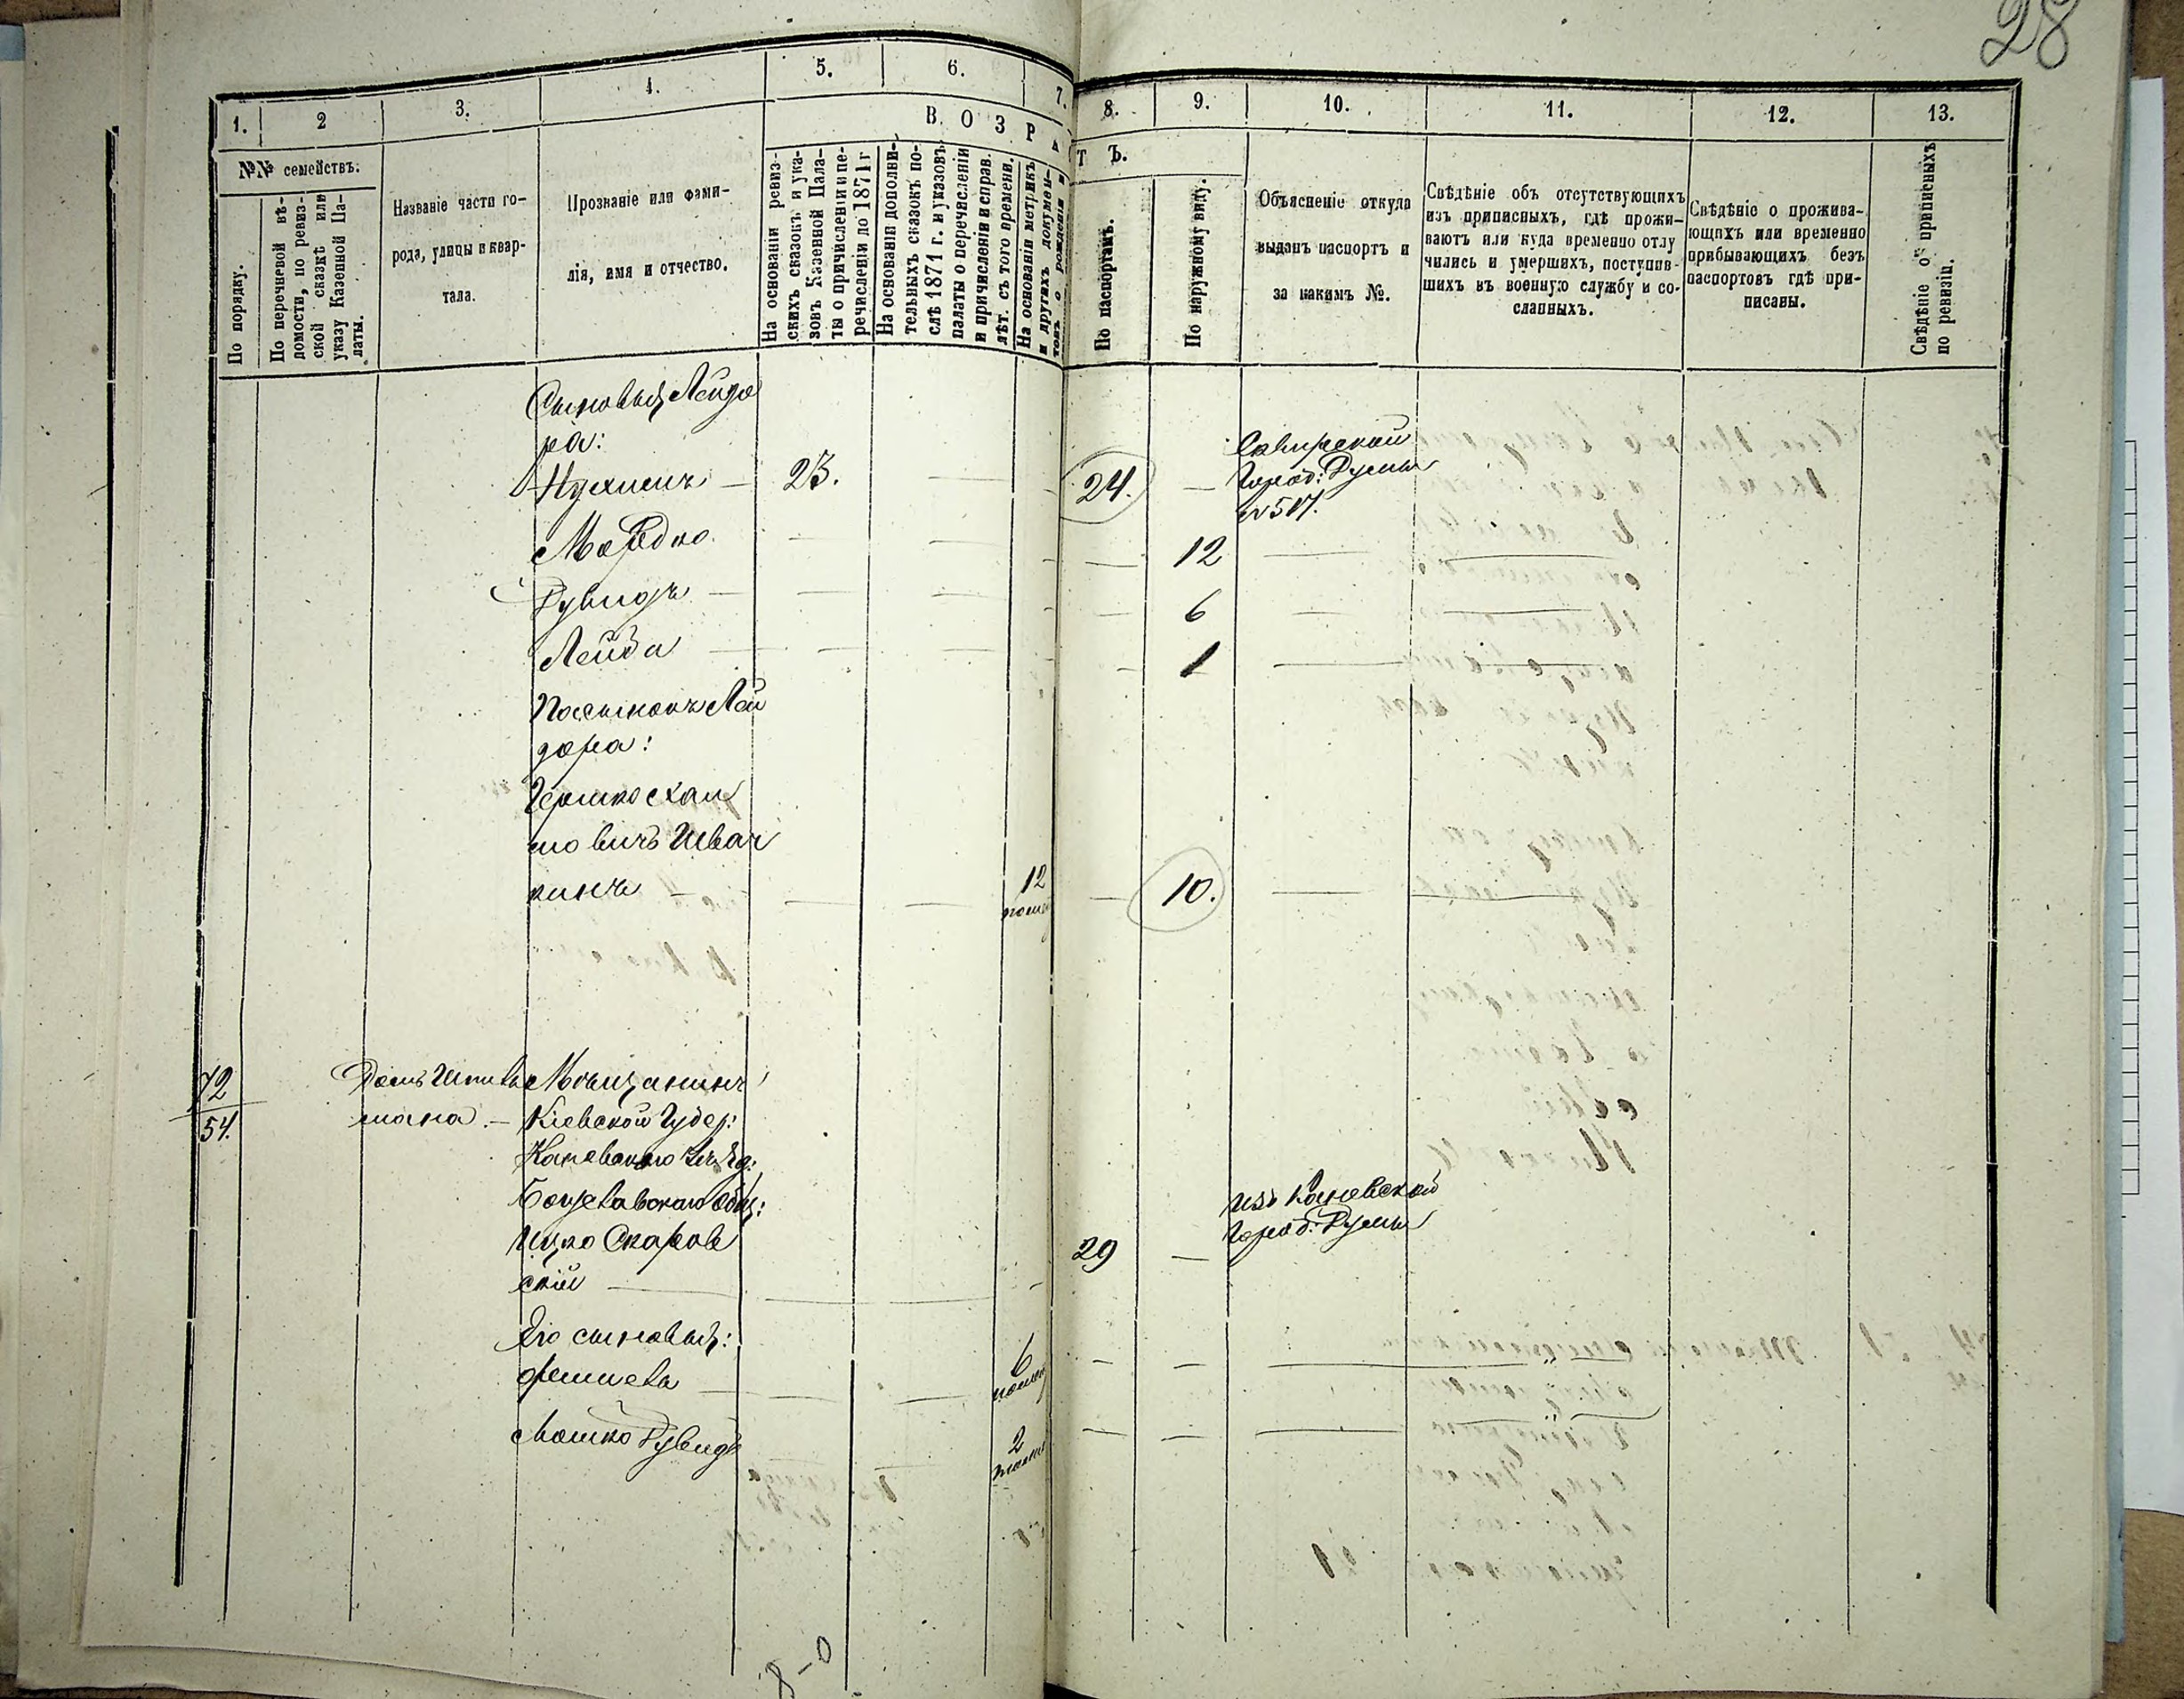 28
1. 2 3. 4. 5. 6. 7. 8. 9. 10. 11. 12. 13.
В О З Р А Т Ъ.
№№ семействъ.
По порядку.
По перечневой вѣ-
домости, по ревиз-
ской сказкѣ или
указу Казенной Па-
латы.
Названіе части го-
рода, улицы и квар-
тала.
Прозваніе или фами-
лія, имя и отчество.
На основаніи ревиз-
скихъ сказокъ и ука-
зовъ Казенной Пала-
ты о причисленіи и пе-
речисленіи до 1871 г
На основаніи дополни-
тельныхъ сказокъ по-
слѣ 1871 г. и указовъ
палаты о перечисленіи
и причисленіи и справ.
лѣт. съ того времени.
На основаніи метрикъ
и другихъ докумен-
товъ о рожденіи и
По паспортамъ.
По наружному виду.
Объясненіе откуда
выданъ паспортъ и
за какимъ №.
Свѣдѣніе объ отсутствующихъ
изъ приписныхъ, гдѣ прожи-
ваютъ или куда временно отлу
чились и умершихъ, поступив-
шихъ въ военную службу и со-
сланныхъ.
Свѣдѣніе о прожива-
ющихъ или временно
прибывающихъ безъ
паспортовъ гдѣ при-
писаны.
Свѣдѣніе о приписныхъ
по ревизіи.
Сыновья Лейдо
ра:
Нухимъ — 23. — 24. — Сквирской
Город: Думы
№ 517.
Мордко — — — 12 —
Рувидъ — — — — 6 — —
Лейба — — — — 1 — —
Пасынокъ Лей
дора:
Гершко Хаи
мовичъ Швач
кинъ — — — 12 — 10. — —
72
54.
Домъ Шпильъ
мана. —
Мѣщанинъ
Кіевской Губер:
Каневского уѣзд:
Богуславского Общ:
Ицко Скаров
скій — — — 29 — изъ Каневской
Город: Думы
Его сыновья:
Фишель — — — 6 — — —
Мошко Рувидъ 2 — — — —
8-0